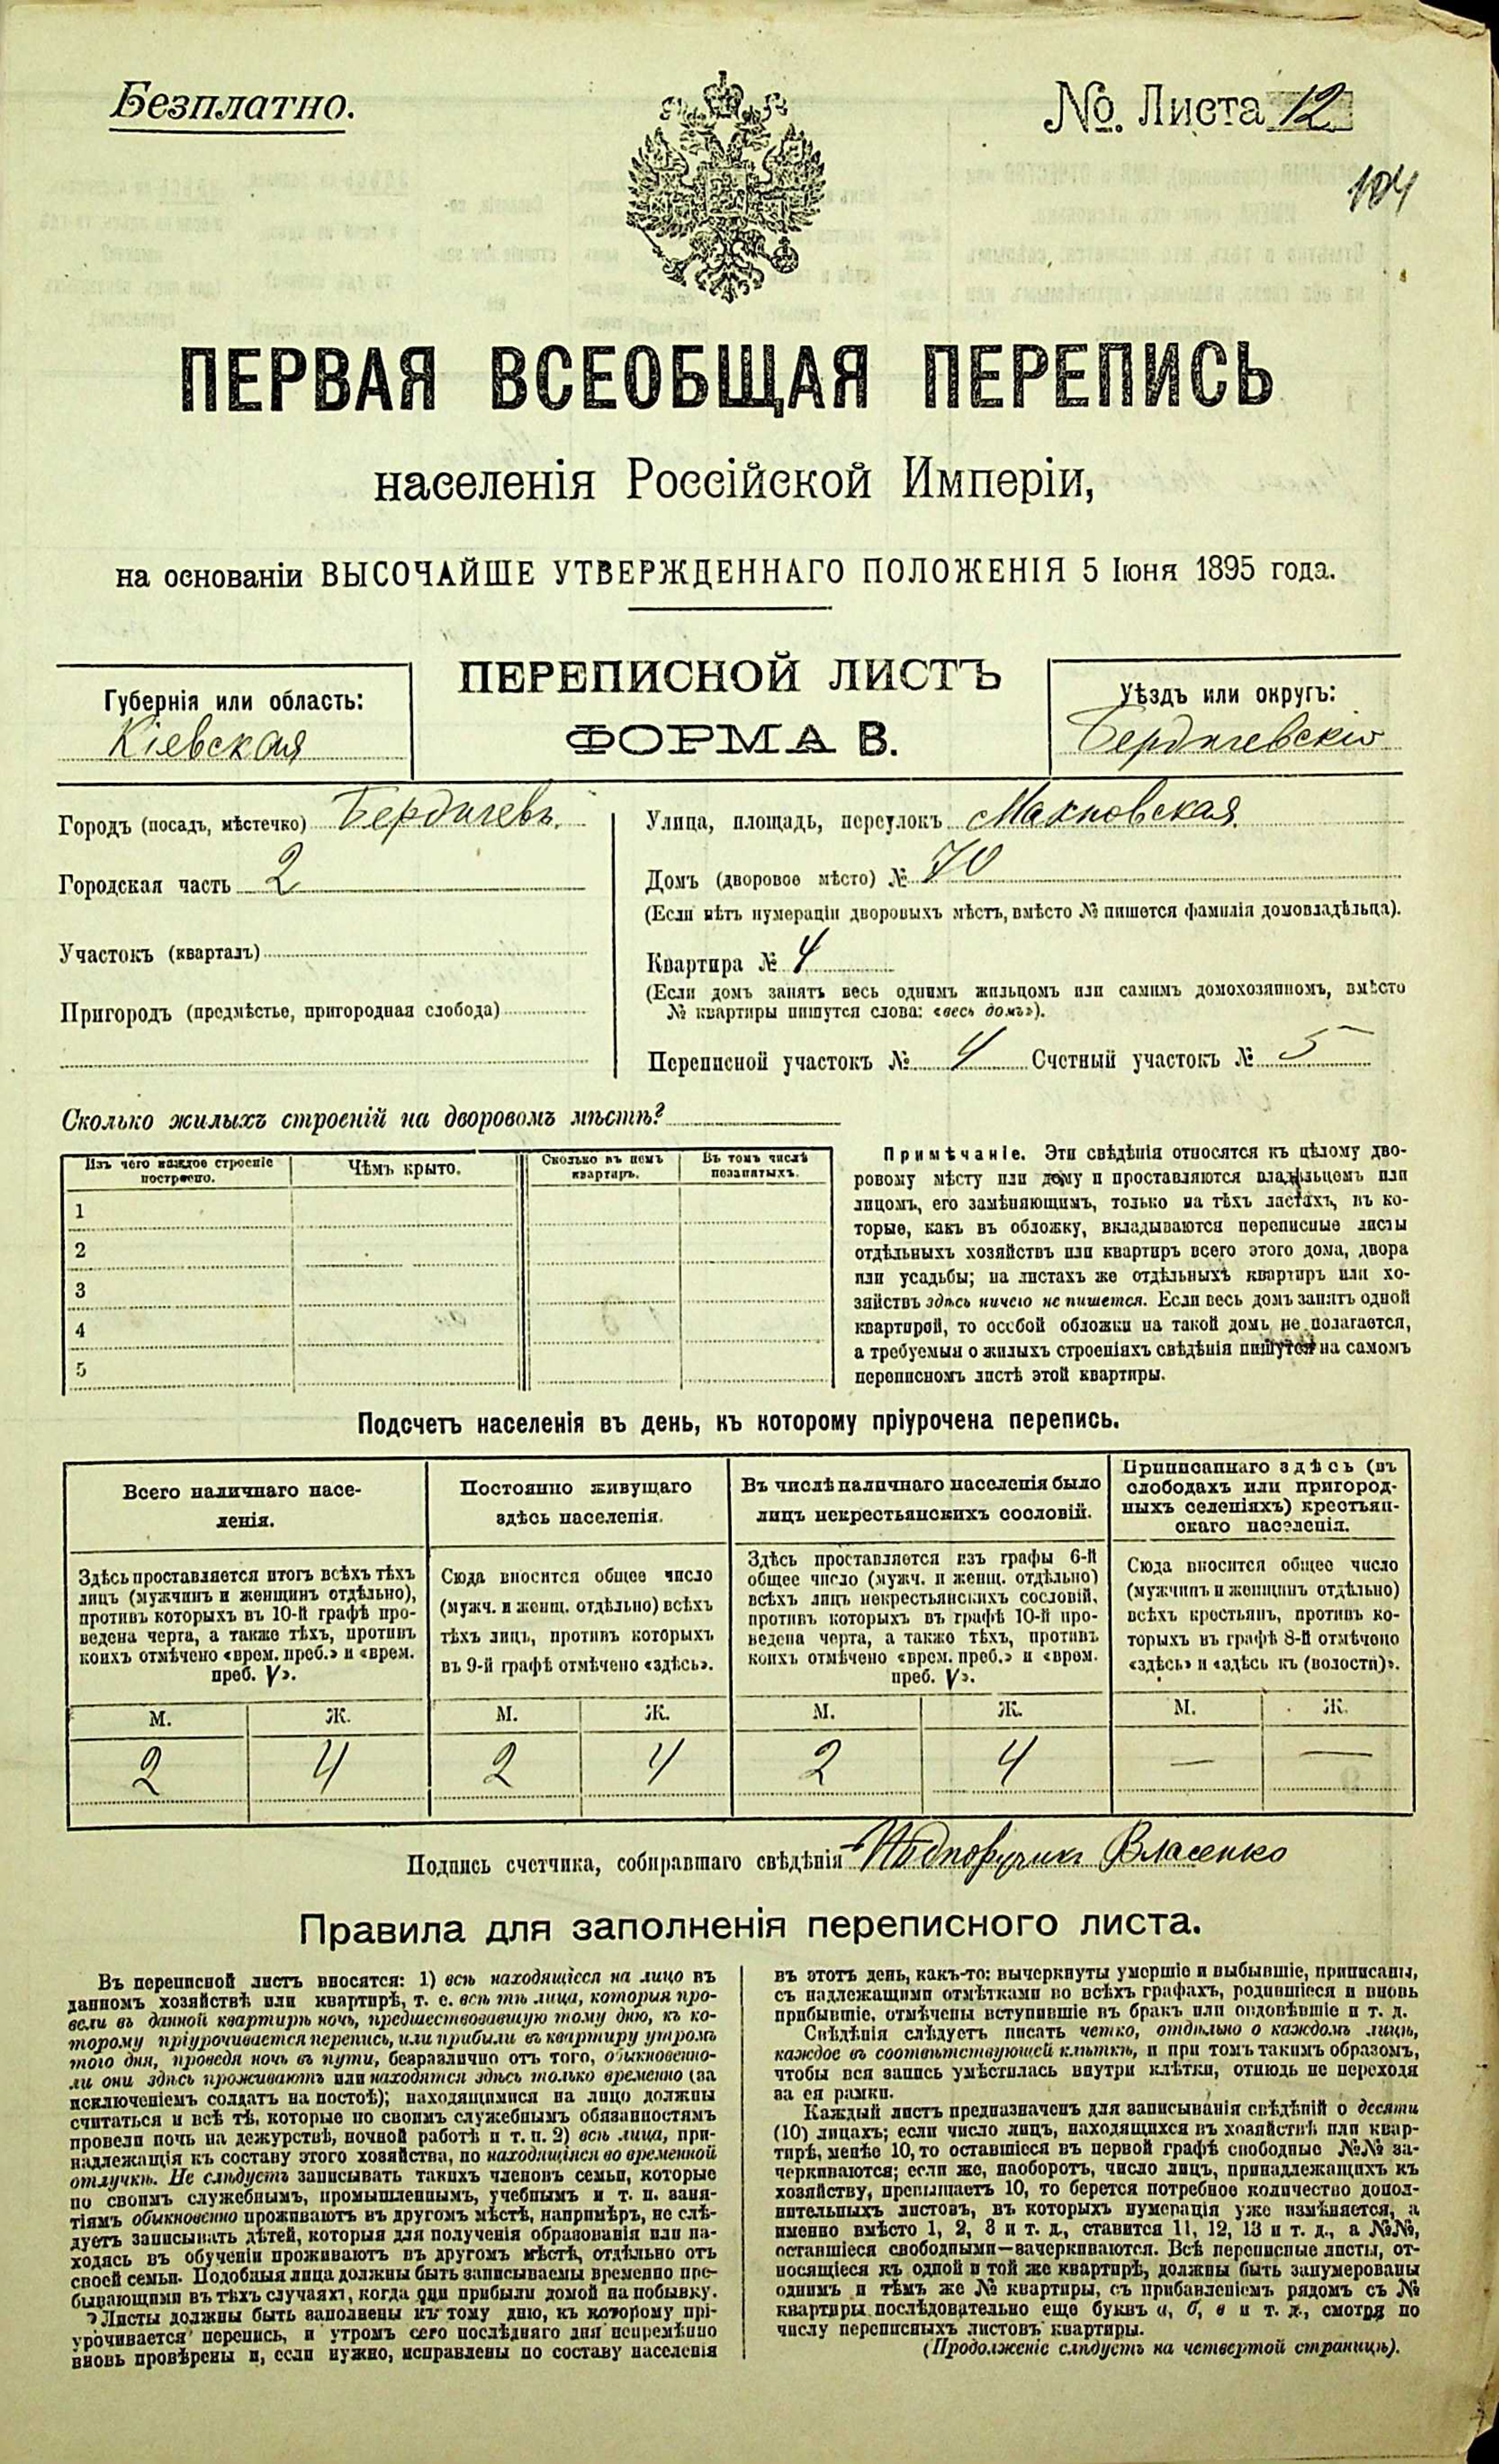 Безплатно.
№. Листа 12
104
ПЕРВАЯ ВСЕОБЩАЯ ПЕРЕПИСЬ
населенія Россійской Имперіи,
на основаніи ВЫСОЧАЙШЕ УТВЕРЖДЕННАГО ПОЛОЖЕНІЯ 5 Іюня 1895 года.
Губернія или область:
Кіевская
ПЕРЕПИСНОЙ ЛИСТЪ
ФОРМА В.
Уѣздъ или округъ:
Бердичевскій
Городъ (посадъ, мѣстечко) Бердичевъ.
Городская часть 2
Участокъ (кварталъ)
Пригородъ (предмѣстье, пригородная слобода)
Улица, площадь, переулокъ Махновская
Домъ (дворовое мѣсто) № 70
(Если нѣтъ нумераціи дворовыхъ мѣстъ, вмѣсто № пишется фамилія домовладѣльца).
Квартира № 4
(Если домъ занятъ весь однимъ жильцомъ или самимъ домохозяиномъ, вмѣсто
№ квартиры пишутся слова: «весь домъ»).
Переписной участокъ № 4 Счетный участокъ № 5
Сколько жилыхъ строеній на дворовомъ мѣстѣ?
Изъ чего каждое строеніе
построено.
Чѣмъ крыто.
Сколько въ немъ
квартиръ.
Въ томъ числѣ
незанятыхъ.
1
2
3
4
5
Примѣчаніе. Эти свѣдѣнія относятся къ цѣлому дво-
ровому мѣсту или дому и проставляются владѣльцемъ или
лицомъ, его замѣняющимъ, только на тѣхъ листахъ, въ ко-
торые, какъ въ обложку, вкладываются переписные листы
отдѣльныхъ хозяйствъ или квартиръ всего этого дома, двора
или усадьбы; на листахъ же отдѣльныхъ квартиръ или хо-
зяйствъ здѣсь ничего не пишется. Если весь домъ занятъ одной
квартирой, то особой обложки на такой домъ не полагается,
а требуемыя о жилыхъ строеніяхъ свѣдѣнія пишутся на самомъ
переписномъ листѣ этой квартиры.
Подсчетъ населенія въ день, къ которому пріурочена перепись.
Всего наличнаго насе-
ленія.
Здѣсь проставляется итогъ всѣхъ тѣхъ
лицъ (мужчинъ и женщинъ отдѣльно),
противъ которыхъ въ 10-й графѣ про-
ведена черта, а также тѣхъ, противъ
коихъ отмѣчено «врем. преб.» и «врем.
преб. V».
Постоянно живущаго
здѣсь населенія.
Сюда вносится общее число
(мужч. и женщ. отдѣльно) всѣхъ
тѣхъ лицъ, противъ которыхъ
въ 9-й графѣ отмѣчено «здѣсь».
Въ числѣ наличнаго населенія было
лицъ некрестьянскихъ сословій.
Здѣсь проставляется изъ графы 6-й
общее число (мужч. и женщ. отдѣльно)
всѣхъ лицъ некрестьянскихъ сословій,
противъ которыхъ въ графѣ 10-й про-
ведена черта, а также тѣхъ, противъ
коихъ отмѣчено «врем. преб.» и «врем.
преб. V».
Приписаннаго здѣсь (въ
слободахъ или пригород-
ныхъ селеніяхъ) крестьян-
скаго населенія.
Сюда вносится общее число
(мужчинъ и женщинъ отдѣльно)
всѣхъ крестьянъ, противъ ко-
торыхъ въ графѣ 8-й отмѣчено
«здѣсь» и «здѣсь къ (волости)».
М. Ж. М. Ж. М. Ж. М. Ж.
2 4 2 4 2 4 — —
Подпись счетчика, собиравшаго свѣдѣнія Подпоручикъ Власенко
Правила для заполненія переписного листа.
Въ переписной листъ вносятся: 1) всѣ находящіеся на лицо въ
данномъ хозяйствѣ или квартирѣ, т. е. всѣ тѣ лица, которыя про-
вели въ данной квартирѣ ночь, предшествовавшую тому дню, къ ко-
торому пріурочивается перепись, или прибыли въ квартиру утромъ
того дня, проведя ночь въ пути, безразлично отъ того, обыкновенно-
ли они здѣсь проживаютъ или находятся здѣсь только временно (за
исключеніемъ солдатъ на постоѣ); находящимися на лицо должны
считаться и всѣ тѣ, которые по своимъ служебнымъ обязанностямъ
провели ночь на дежурствѣ, ночной работѣ и т. п. 2) всѣ лица, при-
надлежащія къ составу этого хозяйства, но находящіяся во временной
отлучкѣ. Не слѣдуетъ записывать такихъ членовъ семьи, которые
по своимъ служебнымъ, промышленнымъ, учебнымъ и т. п. заня-
тіямъ обыкновенно проживаютъ въ другомъ мѣстѣ, напримѣръ, не слѣ-
дуетъ записывать дѣтей, которыя для полученія образованія или на-
ходясь въ обученіи проживаютъ въ другомъ мѣстѣ, отдѣльно отъ
своей семьи. Подобныя лица должны быть записываемы временно пре-
бывающими въ тѣхъ случаяхъ, когда они прибыли домой на побывку.
Листы должны быть заполнены къ тому дню, къ которому прі-
урочивается перепись, и утромъ сего послѣдняго дня непремѣнно
вновь провѣрены и, если нужно, исправлены по составу населенія
въ этотъ день, какъ-то: вычеркнуты умершіе и выбывшіе, приписаны,
съ надлежащими отмѣтками во всѣхъ графахъ, родившіеся и вновь
прибывшіе, отмѣчены вступившіе въ бракъ или овдовѣвшіе и т. д.
Свѣдѣнія слѣдуетъ писать четко, отдѣльно о каждомъ лицѣ,
каждое въ соотвѣтствующей клѣткѣ, и при томъ такимъ образомъ,
чтобы вся запись умѣстилась внутри клѣтки, отнюдь не переходя
за ея рамки.
Каждый листъ предназначенъ для записыванія свѣдѣній о десяти
(10) лицахъ; если число лицъ, находящихся въ хозяйствѣ или квар-
тирѣ, менѣе 10, то оставшіеся въ первой графѣ свободные №№ за-
черкиваются; если же, наоборотъ, число лицъ, принадлежащихъ къ
хозяйству, превышаетъ 10, то берется потребное количество допол-
нительныхъ листовъ, въ которыхъ нумерація уже измѣняется, а
именно вмѣсто 1, 2, 3 и т. д., ставится 11, 12, 13 и т. д., а №№,
оставшіеся свободными—зачеркиваются. Всѣ переписные листы, от-
носящіеся къ одной и той же квартирѣ, должны быть занумерованы
однимъ и тѣмъ же № квартиры, съ прибавленіемъ рядомъ съ №
квартиры послѣдовательно еще буквъ а, б, в и т. д., смотря по
числу переписныхъ листовъ квартиры.
(Продолженіе слѣдуетъ на четвертой страницѣ).